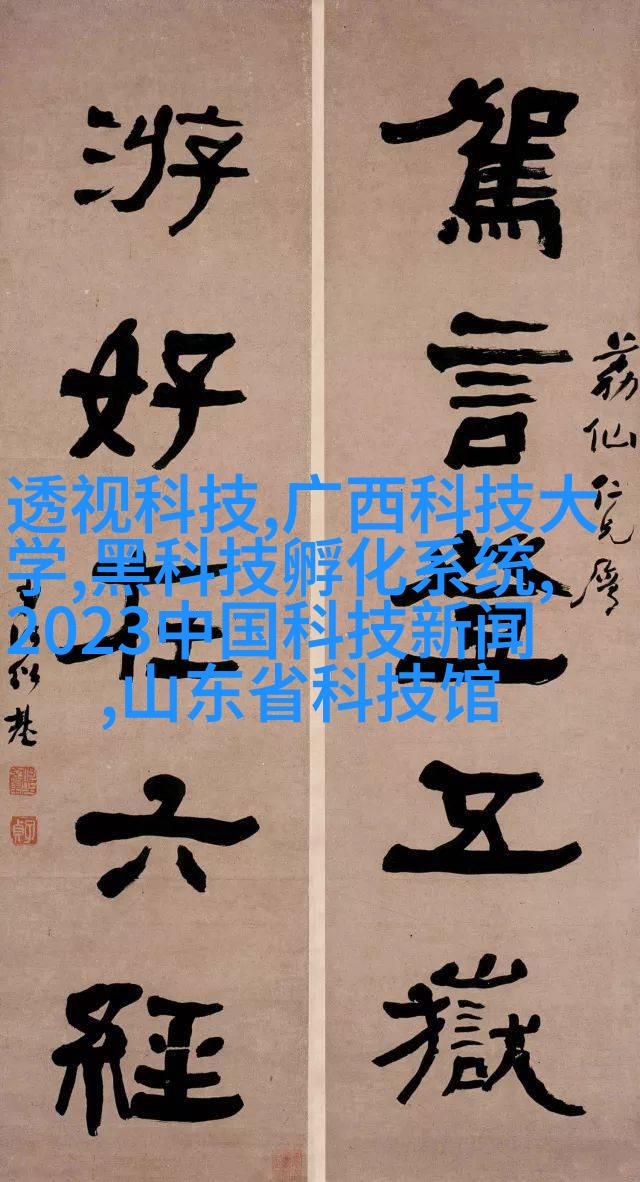 駕言五嶽
荔仙仁兄屬
游好在六經
紹基
透视科技,广西科技大
学,黑科技孵化系统,
2023中国科技新闻
,山东省科技馆